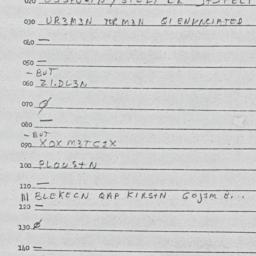 030 UR3M3N MRMAN EIENUNCIATED
040 —
050 —
- BUT
060 ZI.DL3N
070 Ø
080 —
- BUT
090 XOX M3TCIX
100 PLOUStN
110 —
BLEKECN QAP KIRStN GOJ3M
120 —
130 Ø
140 —